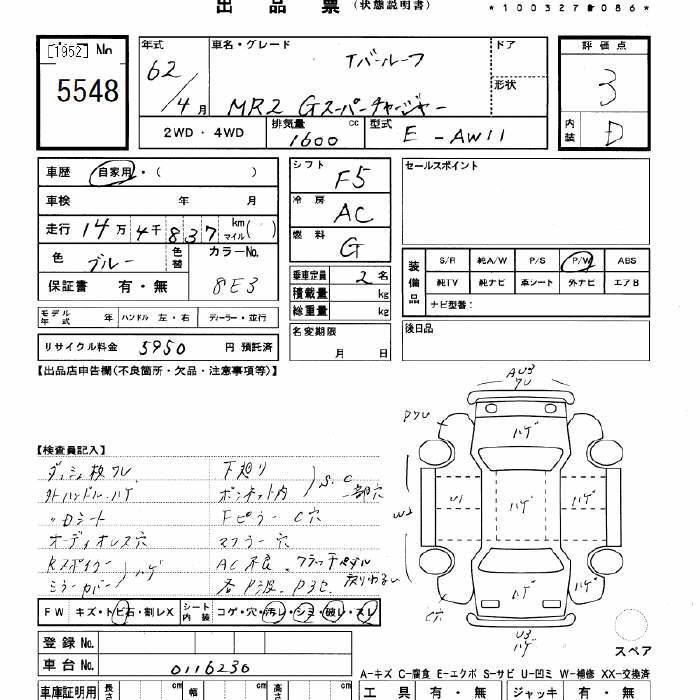 出品票（状態説明書）
*100327#086*
[1952] No
5548
年式 62/4月
車名・グレード Tバールーフ
MR2 Gスーパーチャージャー
ドア
形状
評価点 3
内装 D
2WD・4WD
排気量 1600 cc
型式 E-AW11
車歴 自家用・( )
車検 年 月
走行 14万4千837 km マイル( )
色 ブルー 色替 カラーNo. 8E3
保証書 有・無
モデル年式 年 ハンドル 左・右 ディーラー・並行
リサイクル料金 5950 円 預託済
シフト F5
冷房 AC
燃料 G
乗車定員 2名
積載量 kg
総重量 kg
名変期限
月 日
セールスポイント
装備品 S/R 純A/W P/S P/W ABS
純TV 純ナビ 革シート 外ナビ エアB
ナビ型番：
後日品
【出品店申告欄(不良箇所・欠品・注意事項等)】
【検査員記入】
ダッシュ枚ワレ
外ハンドルハゲ
〃Dシート
オーディオレス穴
Rスポイラー
ミラーカバー ハゲ
下廻り
ボンネット内 S.C 一部穴
Fピラー C穴
マフラー穴
AC不良 クラッチペダル
各P波.P3セ 戻りわるい
FW キズ・トビ石・割レX シート内装 コゲ・穴・汚レ・シミ・破レ・スレ
登録No.
車台No. 0116230
車庫証明用 長さ cm 幅 cm 高さ cm
AU3
ワレ
Pワレ
ハゲ
U1
ハゲ
ハゲ
W2
ハゲ
ハゲ
C穴
U3
ハゲ
スペア
A-キズ C-腐食 E-エクボ S-サビ U-凹ミ W-補修 XX-交換済
工具 有・無 ジャッキ 有・無